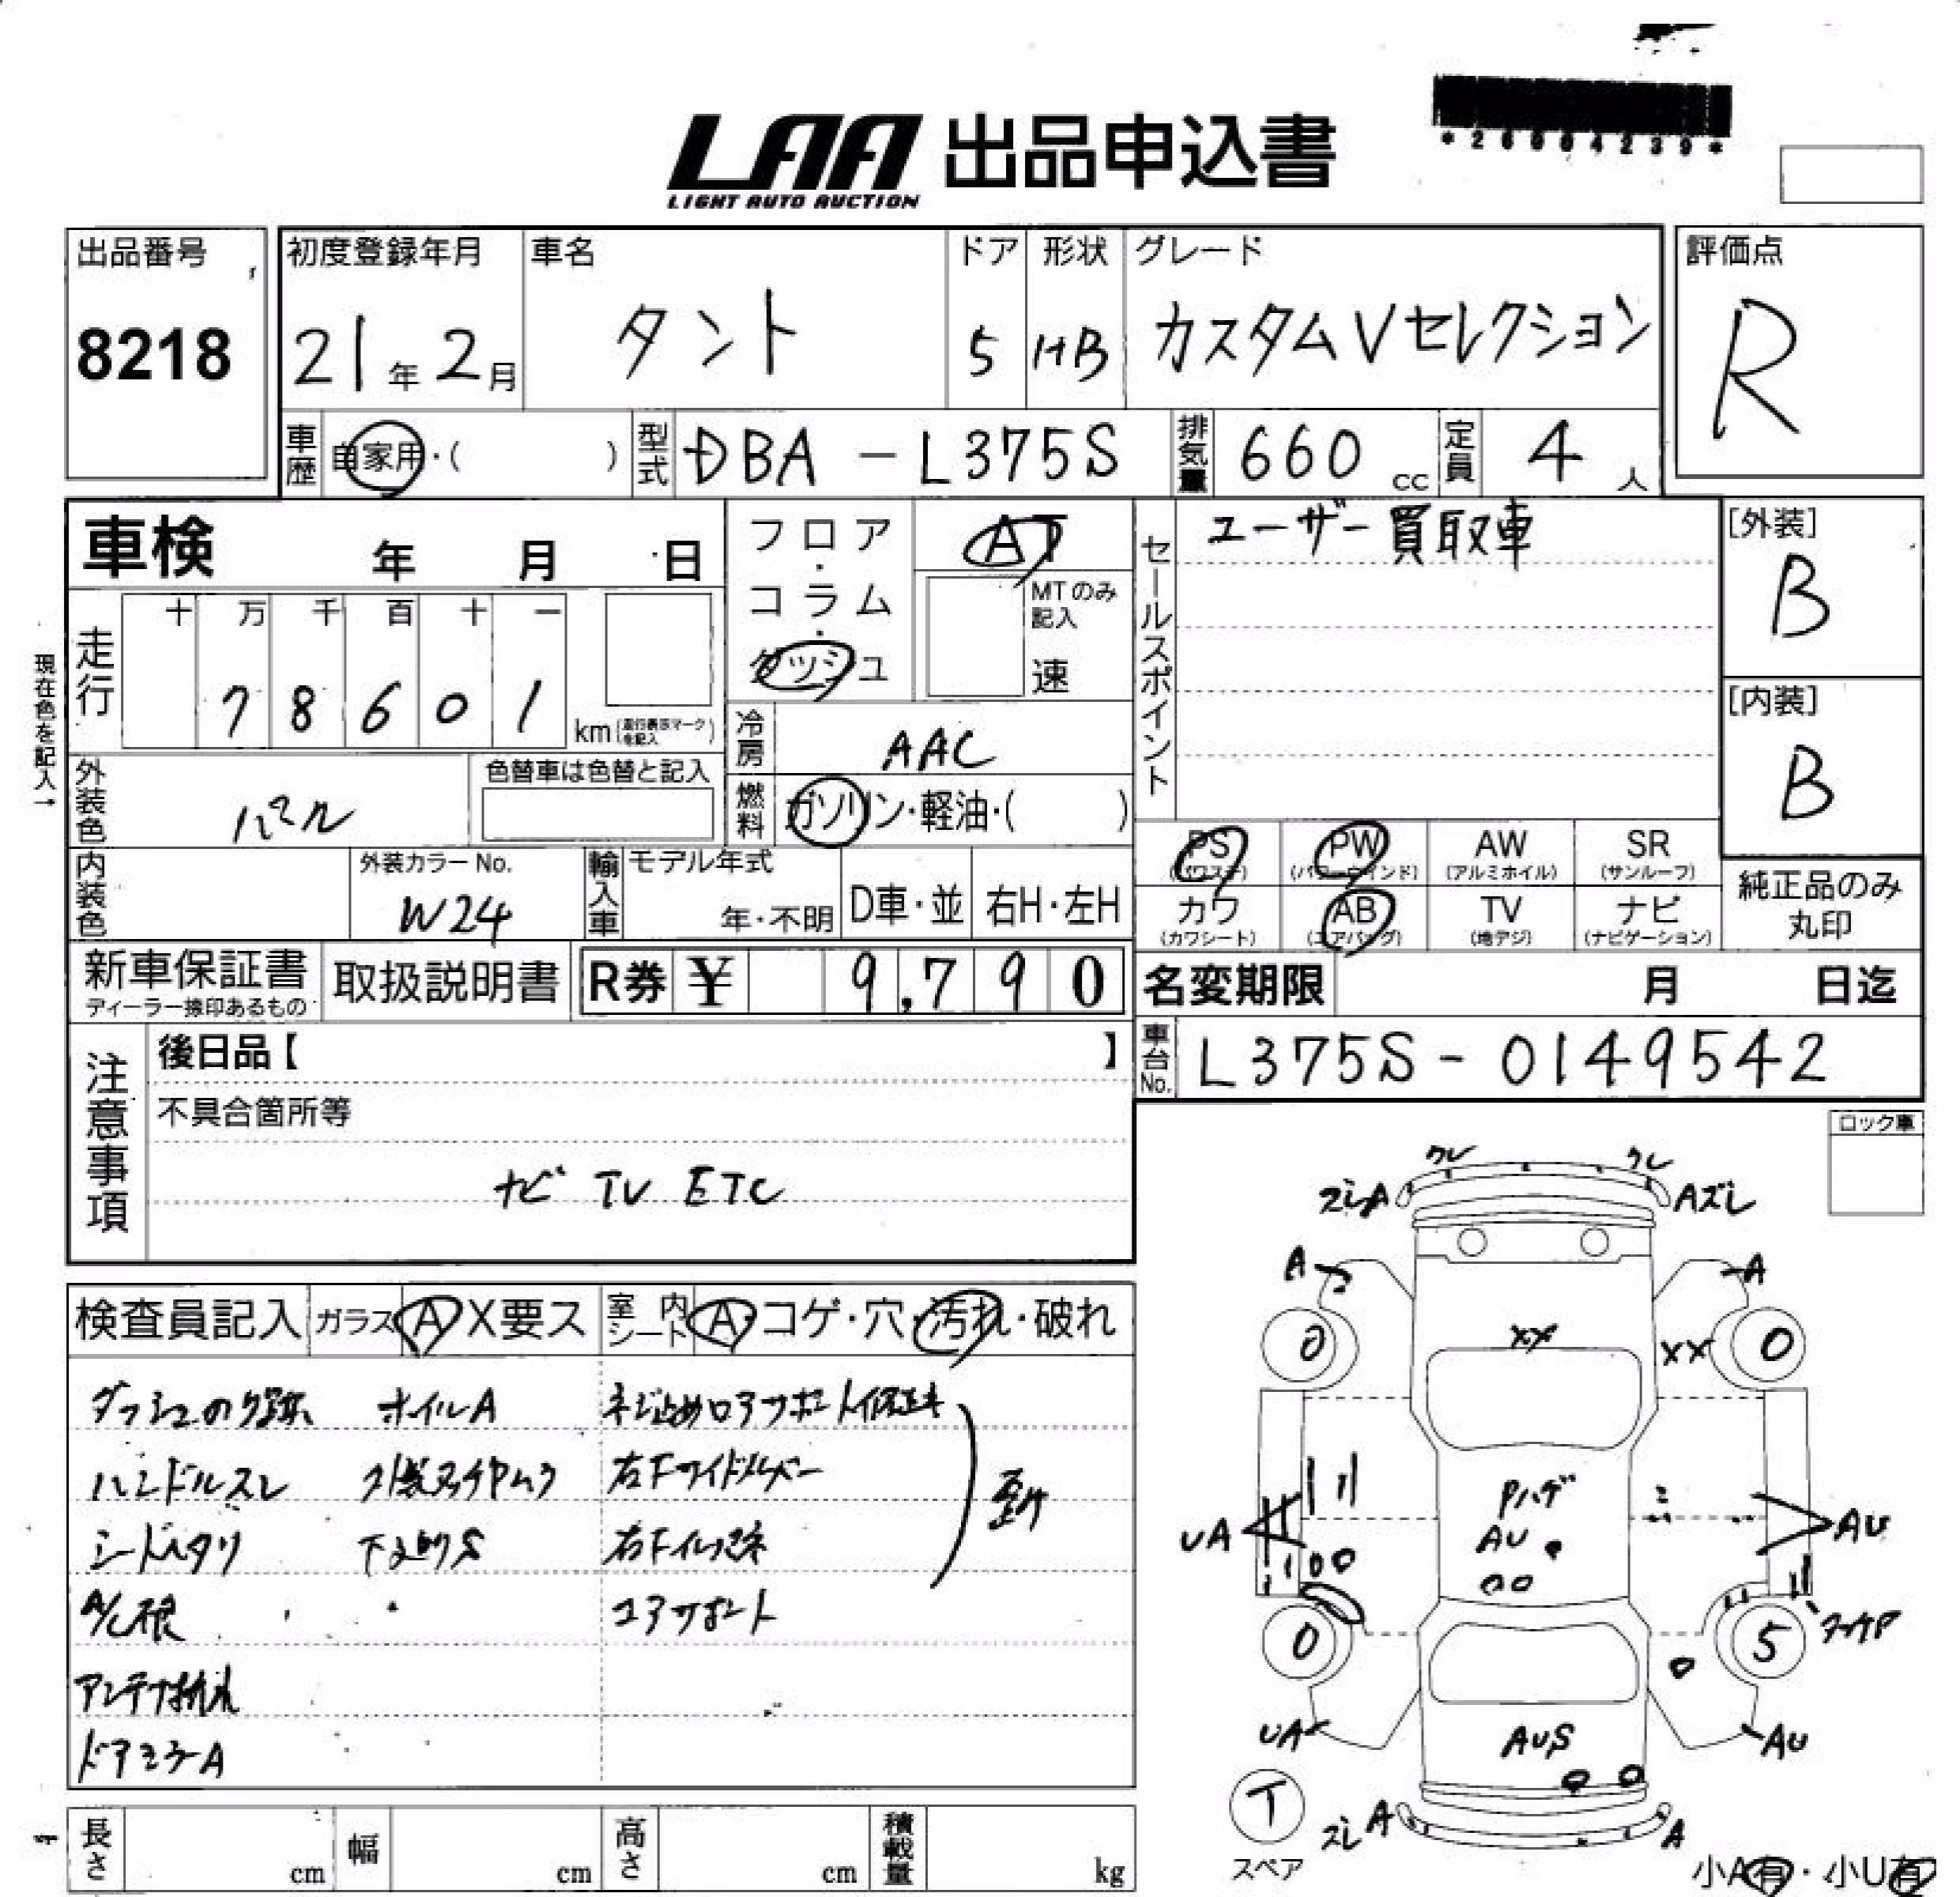 *26004239*
LAA 出品申込書
LIGHT AUTO AUCTION
出品番号
8218
初度登録年月
21年2月
車名
タント
ドア
5
形状
HB
グレード
カスタムVセレクション
評価点
R
車歴 自家用・( )
型式 DBA-L375S
排気量 660 cc
定員 4人
車検 年 月 日
フロア・コラム・ダッシュ
AT
MTのみ記入
速
セールスポイント
ユーザー買取車
[外装]
B
[内装]
B
現在色を記入→
走行
十 万 千 百 十 一
7 8 6 0 1
km(走行表示マークを記入)
冷房 AAC
燃料 ガソリン・軽油・( )
外装色 パール
色替車は色替と記入
内装色
外装カラーNo.
W24
輸入車
モデル年式
年・不明
D車・並
右H・左H
PS (パワステ)
PW (パワーウインド)
AW (アルミホイル)
SR (サンルーフ)
カワ (カワシート)
AB (エアバッグ)
TV (地デジ)
ナビ (ナビゲーション)
純正品のみ丸印
新車保証書
ディーラー捺印あるもの
取扱説明書
R券 ¥ 9,790
名変期限 月 日迄
車台No. L375S-0149542
注意事項
後日品【 】
不具合箇所等
ナビ TV ETC
ロック車
検査員記入 ガラス A X要ス
室内シート A・コゲ・穴・汚れ・破れ
ホイルA
ハンドルスレ
アンテナ折れ
ドアミラーA
コアサポート
ワレ ワレ
ズレA Aズレ
A A
0 0
XX XX
Pハゲ
AU
UA AU
0 5
UA AUS AU
T
スペア
ズレ A A
小A有・小U有
長さ cm
幅 cm
高さ cm
積載量 kg